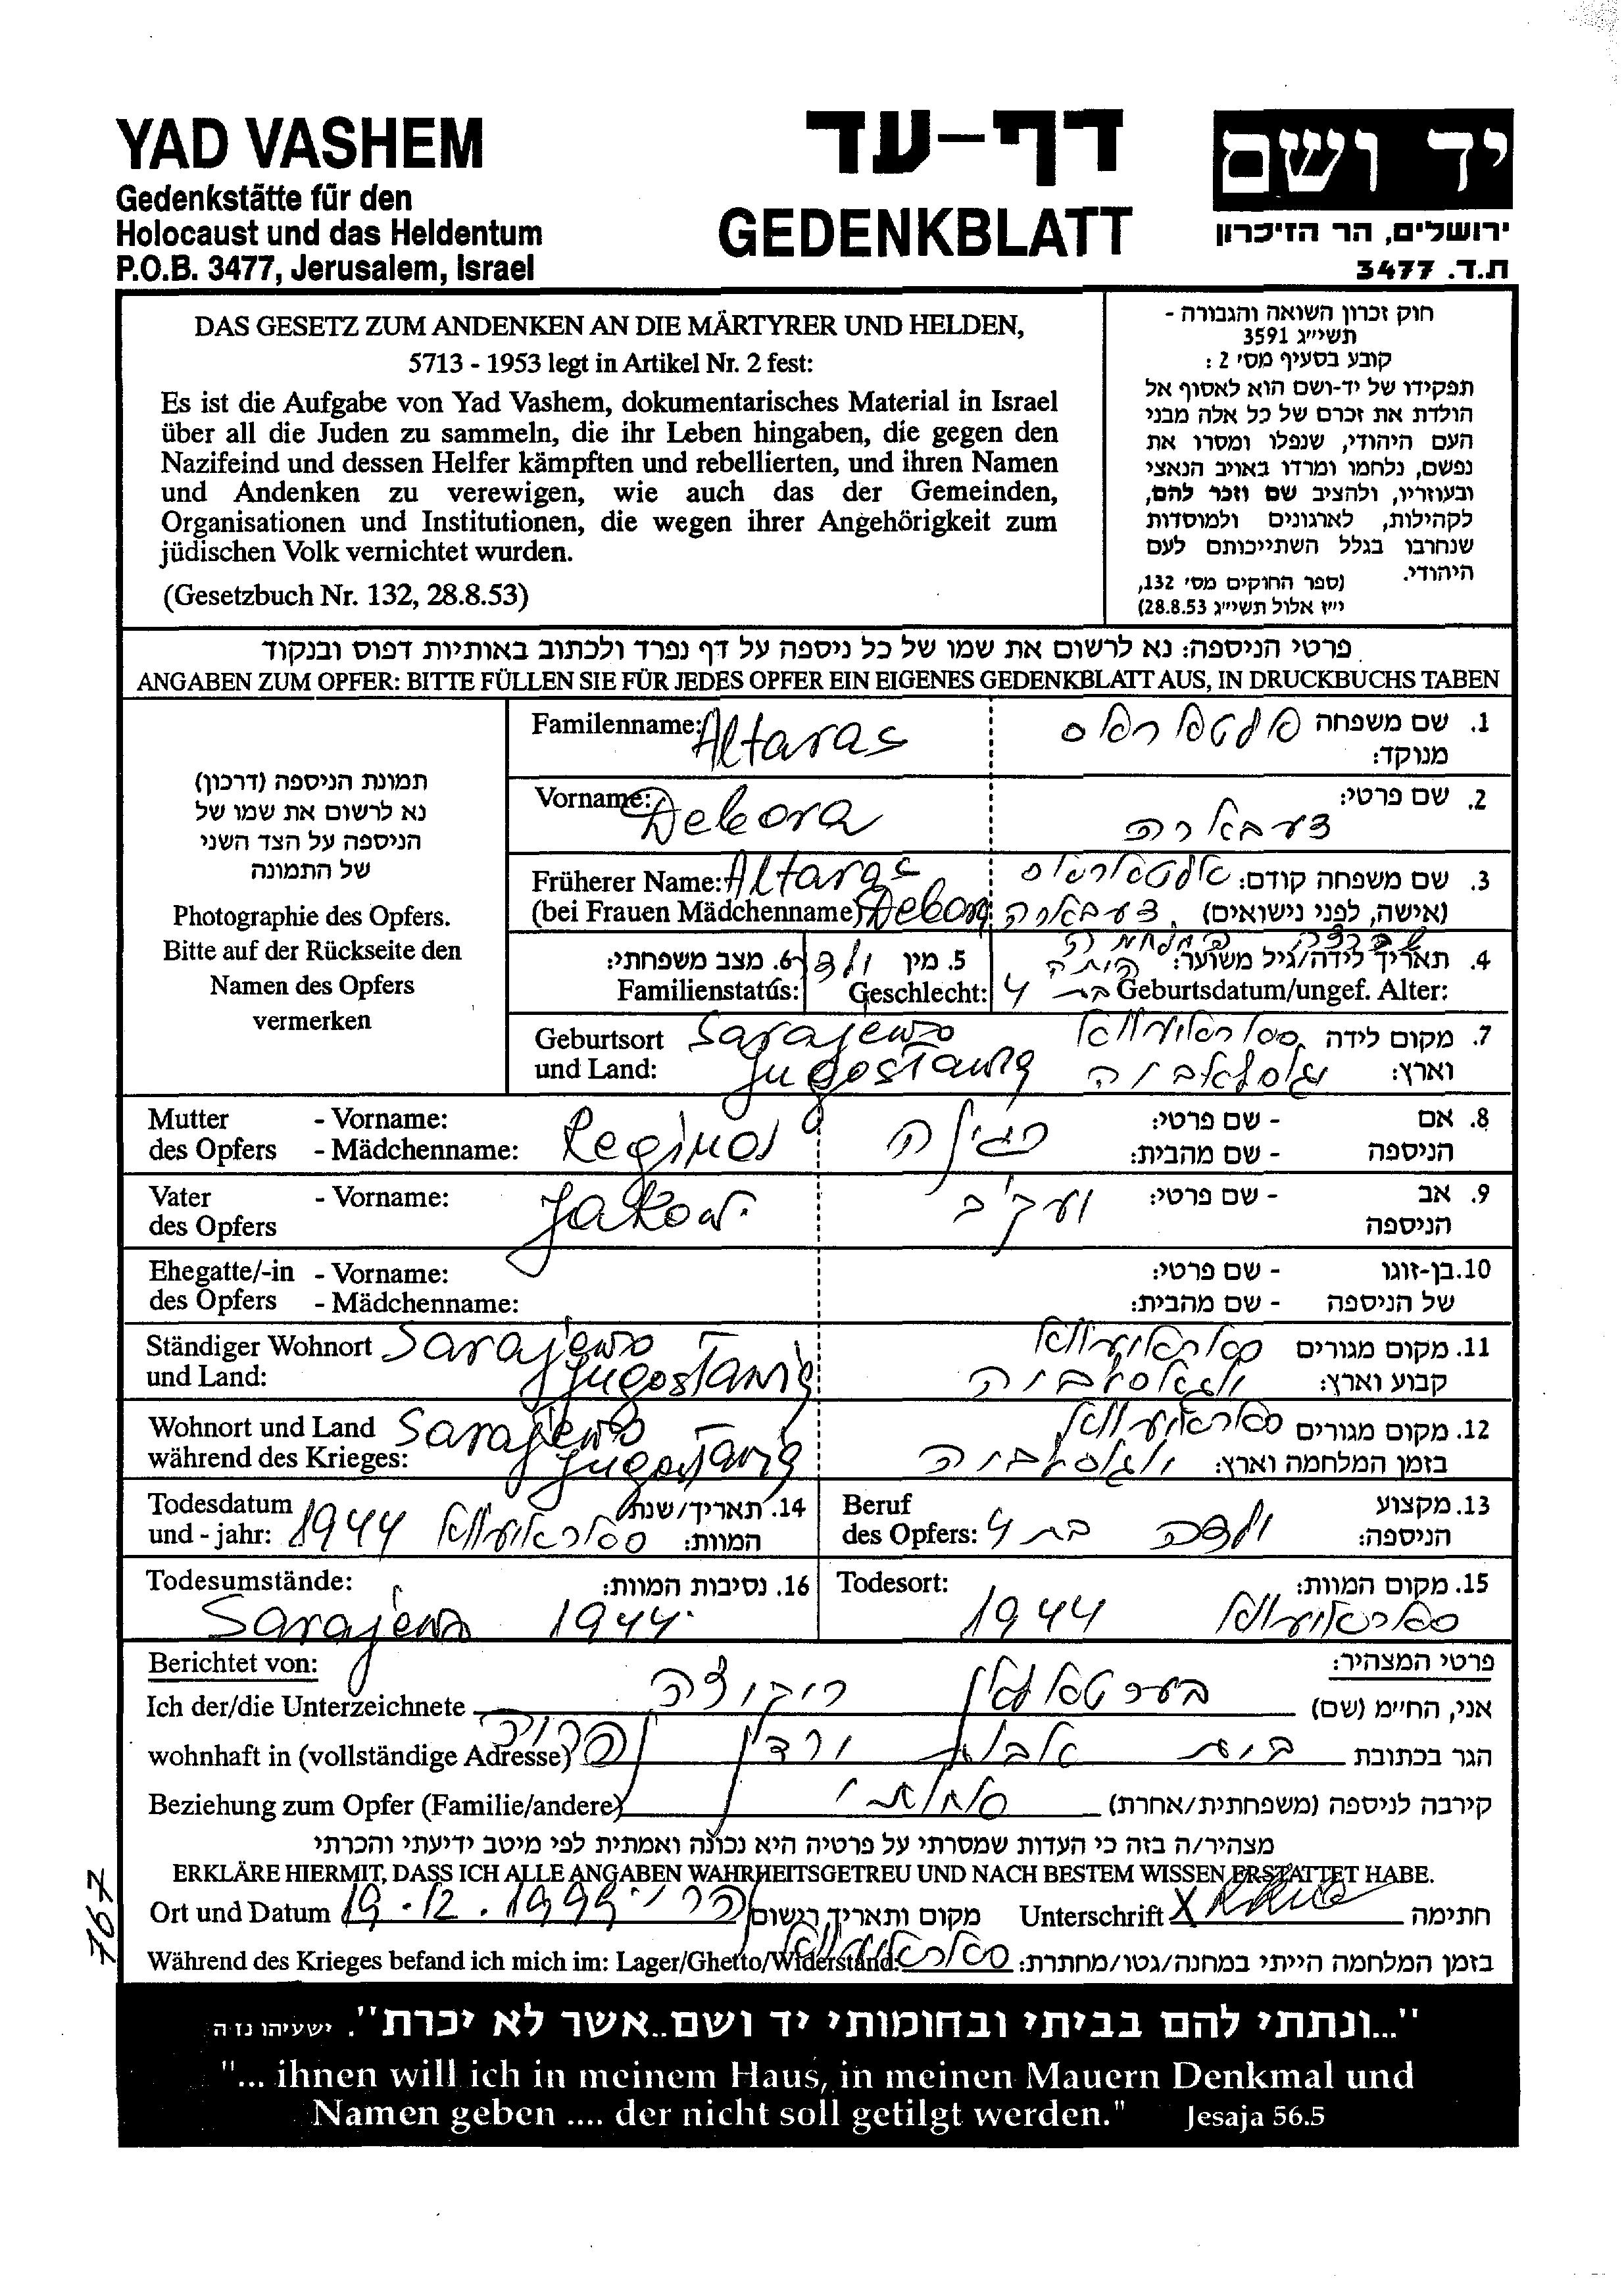 YAD VASHEM
Gedenkstätte für den
Holocaust und das Heldentum
P.O.B. 3477, Jerusalem, Israel
דף-עד
GEDENKBLATT
יד ושם
ירושלים, הר הזיכרון
ת.ד. 3477
DAS GESETZ ZUM ANDENKEN AN DIE MÄRTYRER UND HELDEN,
5713 - 1953 legt in Artikel Nr. 2 fest:
Es ist die Aufgabe von Yad Vashem, dokumentarisches Material in Israel
über all die Juden zu sammeln, die ihr Leben hingaben, die gegen den
Nazifeind und dessen Helfer kämpften und rebellierten, und ihren Namen
und Andenken zu verewigen, wie auch das der Gemeinden,
Organisationen und Institutionen, die wegen ihrer Angehörigkeit zum
jüdischen Volk vernichtet wurden.
(Gesetzbuch Nr. 132, 28.8.53)
חוק זכרון השואה והגבורה -
תשי״ג 3591
קובע בסעיף מס׳ 2 :
תפקידו של יד-ושם הוא לאסוף אל
הולדת את זכרם של כל אלה מבני
העם היהודי, שנפלו ומסרו את
נפשם, נלחמו ומרדו באויב הנאצי
ובעוזריו, ולהציב שם וזכר להם,
לקהילות, לארגונים ולמוסדות
שנחרבו בגלל השתייכותם לעם
היהודי. (ספר החוקים מס׳ 132,
י״ז אלול תשי״ג 28.8.53)
פרטי הניספה: נא לרשום את שמו של כל ניספה על דף נפרד ולכתוב באותיות דפוס ובנקוד
ANGABEN ZUM OPFER: BITTE FÜLLEN SIE FÜR JEDES OPFER EIN EIGENES GEDENKBLATT AUS, IN DRUCKBUCHS TABEN
תמונת הניספה (דרכון)
נא לרשום את שמו של
הניספה על הצד השני
של התמונה
Photographie des Opfers.
Bitte auf der Rückseite den
Namen des Opfers
vermerken
Familenname: Altaras
1. שם משפחה
מנוקד:
Vorname: Debora
2. שם פרטי:
Früherer Name: Altaras
(bei Frauen Mädchenname)
3. שם משפחה קודם:
(אישה, לפני נישואים)
4. תאריך לידה/גיל משוער:
Geburtsdatum/ungef. Alter: בת 4
5. מין
Geschlecht:
6. מצב משפחתי:
Familienstatús:
Geburtsort Sarajewo
und Land:
7. מקום לידה
וארץ:
Mutter - Vorname: Regina
des Opfers - Mädchenname:
8. אם - שם פרטי:
הניספה - שם מהבית:
Vater - Vorname: Jakow
des Opfers
9. אב - שם פרטי:
הניספה
Ehegatte/-in - Vorname:
des Opfers - Mädchenname:
10. בן-זוגו - שם פרטי:
של הניספה - שם מהבית:
Ständiger Wohnort Sarajewo
und Land:
11. מקום מגורים
קבוע וארץ:
Wohnort und Land Sarajewo
während des Krieges:
12. מקום מגורים
בזמן המלחמה וארץ:
Todesdatum
und - jahr: 1944
14. תאריך/שנת
המוות:
Beruf
des Opfers: ילדה בת 4
13. מקצוע
הניספה:
Todesumstände:
16. נסיבות המוות:
Sarajewo 1944
Todesort: 1944
15. מקום המוות:
Berichtet von:
פרטי המצהיר:
Ich der/die Unterzeichnete
אני, החי״מ (שם)
wohnhaft in (vollständige Adresse)
הגר בכתובת בית אבות
Beziehung zum Opfer (Familie/andere)
קירבה לניספה (משפחתית/אחרת)
מצהיר/ה בזה כי העדות שמסרתי על פרטיה היא נכונה ואמתית לפי מיטב ידיעתי והכרתי
ERKLÄRE HIERMIT, DASS ICH ALLE ANGABEN WAHRHEITSGETREU UND NACH BESTEM WISSEN ERSTATTET HABE.
Ort und Datum 19.12.1999
מקום ותאריך רישום
Unterschrift X
חתימה
Während des Krieges befand ich mich im: Lager/Ghetto/Widerstand:
בזמן המלחמה הייתי במחנה/גטו/מחתרת:
767
"...ונתתי להם בביתי ובחומותי יד ושם..אשר לא יכרת". ישעיהו נו ה
"... ihnen will ich in meinem Haus, in meinen Mauern Denkmal und
Namen geben .... der nicht soll getilgt werden." Jesaja 56.5